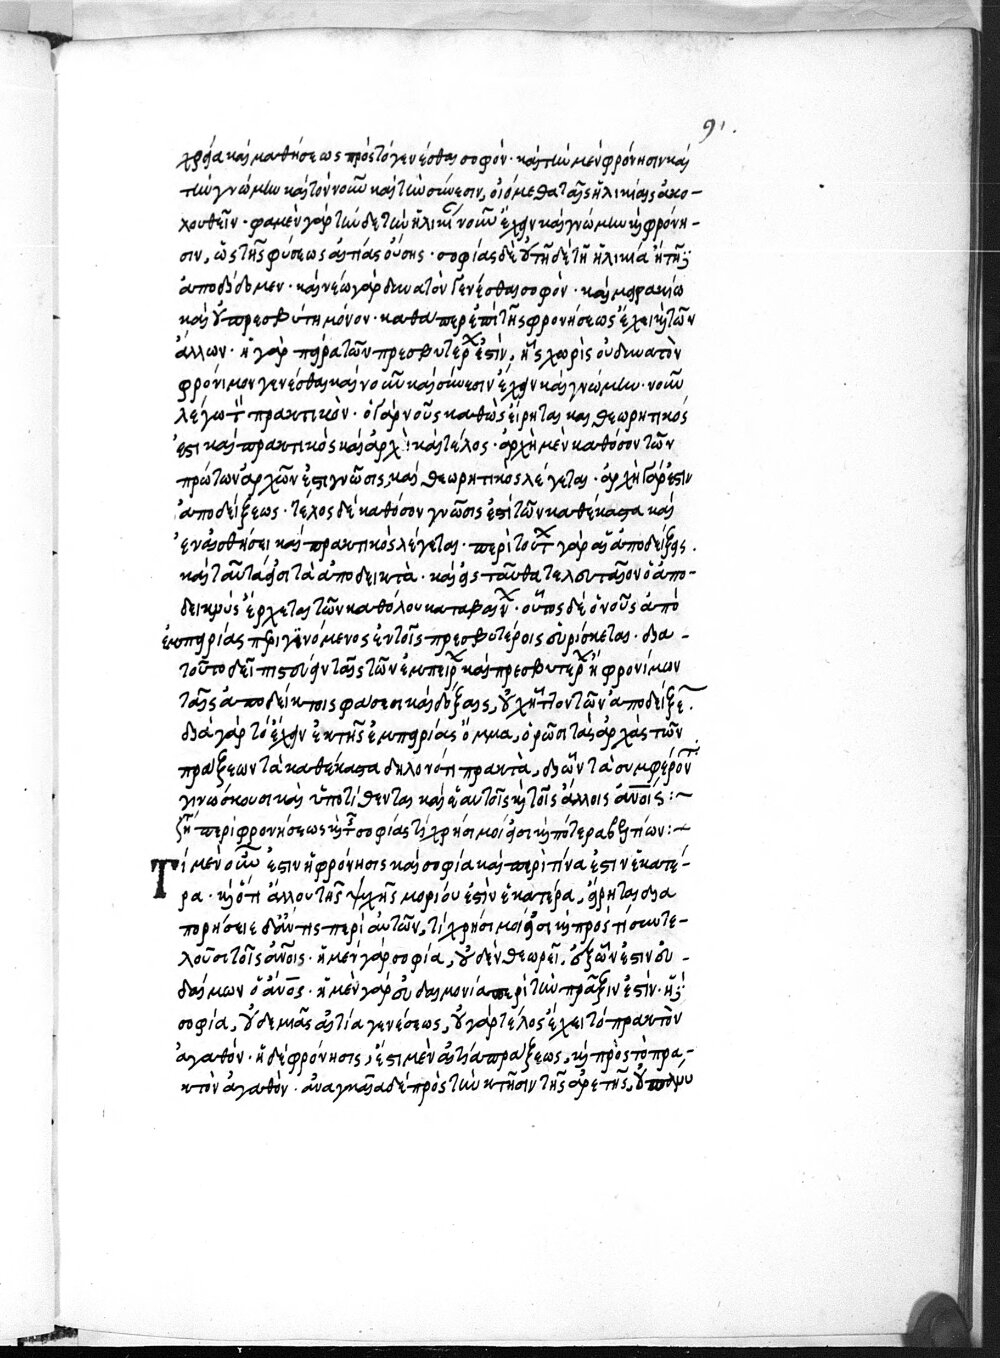 91.
χρεία καὶ μαθήσεως πρὸς τὸ γενέσθαι σοφόν· καὶ τὴν μὲν φρόνησιν καὶ
τὴν γνώμην καὶ τὸν νοῦν καὶ τὴν σύνεσιν, οἰόμεθα ταῖς ἡλικίαις ἀκο-
λουθεῖν· φαμὲν γὰρ τήνδε τὴν ἡλικί νοῦν ἔχειν καὶ γνώμην καὶ φρόνη-
σιν, ὡς τῆς φύσεως αἰτίας οὔσης· σοφίας δὲ οὐ τῇδε τῇ ἡλικίᾳ ἢ τῇ
ἀποδίδομεν· καὶ νέω γὰρ δυνατὸν γενέσθαι σοφὸν· καὶ μειρακίω
καὶ οὐ πρεσβύτη μόνον· καθάπερ ἐπὶ τῆς φρονήσεως ἔχει καὶ τῶν
ἄλλων· ἡ γὰρ πεῖρα τῶν πρεσβυτέρ ἐστὶν, ἧς χωρὶς οὐ δυνατὸν
φρόνιμον γενέσθαι καὶ νοῦν καὶ σύνεσιν ἔχειν καὶ γνώμην· νοῦν
λέγω τ πρακτικὸν· ὁ γὰρ νοῦς καθὼς εἴρηται καὶ θεωρητικός
ἐστι καὶ πρακτικὸς καὶ ἀρχὴ καὶ τέλος· ἀρχὴ μὲν καθόσον τῶν
πρώτων ἀρχῶν ἐστι γνῶσις, καὶ θεωρητικὸς λέγεται· ἀρχὴ γάρ ἐστιν
ἀποδείξεως· τέλος δὲ καθόσον γνῶσις ἐστὶ τῶν καθέκαστα καὶ
ἐν αἰσθήσει καὶ πρακτικὸς λέγεται· περὶ τούτ γὰρ αἱ ἀποδείξεις.
καὶ ταῦτά εἰσι τὰ ἀποδεικτὰ· καὶ εἰς ταῦτα τελευταῖον ὁ ἀπο-
δεικνὺς ἔρχεται τῶν καθόλου καταβαίν· οὗτος δὲ ὁ νοῦς ἀπὸ
ἐμπειρίας περιγινόμενος ἐν τοῖς πρεσβυτέροις εὑρίσκεται· δια-
τοῦτο δεῖ πιστεύειν ταῖς τῶν ἐμπείρ καὶ πρεσβυτέρ ἢ φρονίμων
ταῖς ἀποδείκτοις φάσεσι καὶ δόξαις, οὐχ ἧττον τῶν ἀποδείξε.
διὰ γὰρ τὸ ἔχειν ἐκ τῆς ἐμπειρίας ὄμμα, ὁρῶσι τὰς ἀρχὰς τῶν
πράξεων τὰ καθέκαστα δηλονότι πρακτὰ, δι' ὧν τὰ συμφέροντ
γινώσκουσι καὶ ὑποτίθενται καὶ ἑαυτοῖς καὶ τοῖς ἄλλοις ἀνοις:~
ζη περὶ φρονήσεως καὶ τ σοφίας τί χρήσιμοί εἰσι καὶ ποτέρα βελτίων:~
Τί μὲν οὖν ἐστιν ἡ φρόνησις καὶ σοφία καὶ περὶ τίνα ἐστὶν ἑκατέ-
ρα· καὶ ὅτι ἄλλου τῆς ψυχῆς μορίου ἐστὶν ἑκατέρα, εἴρηται· δια
πορήσειε δ' ἄν τις περὶ αὐτῶν, τί χρήσιμοί εἰσι καὶ πρὸς τί συντε-
λοῦσι τοῖς ἀνοις· ἡ μὲν γὰρ σοφία, οὐδὲν θεωρεῖ, ἐξ ὧν ἐστιν εὐ-
δαίμων ὁ ἀνος· ἡ μὲν γὰρ εὐδαιμονία περὶ τὴν πρᾶξιν ἐστὶν· ἡ
σοφία, οὐδεμιᾶς αἰτία γενέσεως, οὐ γὰρ τέλος ἔχει τὸ πρακτὸν
ἀγαθόν· ἡ δὲ φρόνησις, ἔστι μὲν αἰτία πράξεως, καὶ πρὸς τὸ πρα-
κτὸν ἀγαθὸν· ἀναγκαῖα δὲ πρὸς τὴν κτῆσιν τῆς ἀρετῆς, οὐ